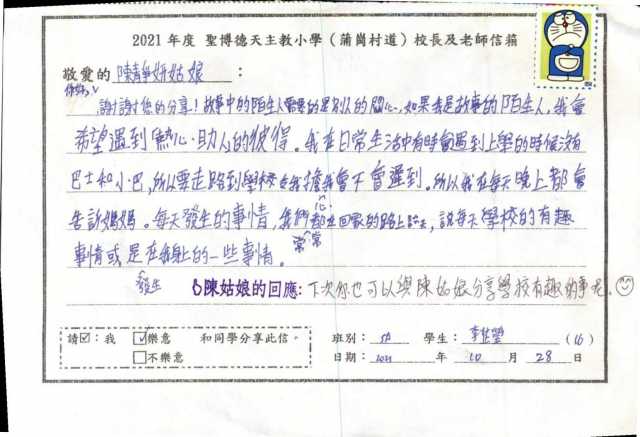 2021 年度 聖博德天主教小學（蒲崗村道）校長及老師信箱
敬愛的 陳靜妍姑娘 ：
你好，
謝謝您的分享！故事中的陌生人需要的是別人的關心，如果我是故事的陌生人，我會
希望遇到熱心助人的彼得。我在日常生活中有時會遇到上學的時候沒有
巴士和小巴，所以要走路到學校 我擔 我會不會遲到。所以我在每天晚上都會
告訴媽媽。每天發生的事情，我們都 回家的路上 說每天學校的有趣
事情或是在我身上的一些事情。
常常
發生
陳姑娘的回應：下次你也可以與陳姑娘分享學校有趣的事呢！
請☑：我 ☑樂意 和同學分享此信。
□不樂意
班別： 5A 學生： 李 瑩 (16)
日期： 2021 年 10 月 28 日